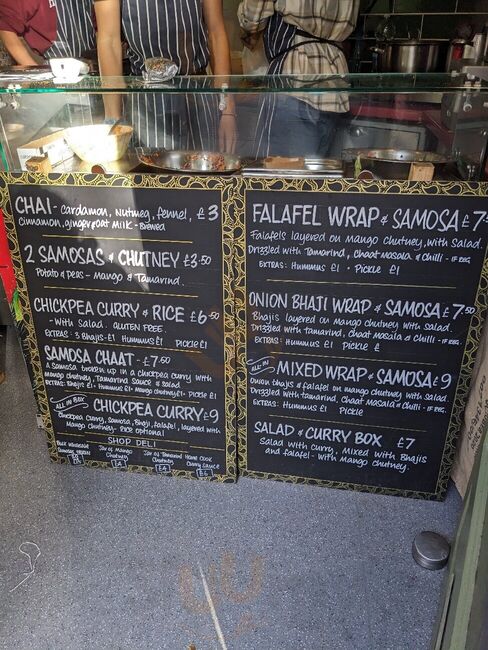 CHAI - Cardamon, Nutmeg, fennel, £3
Cinnamon, ginger, oat Milk - Brewed
2 SAMOSAS & CHUTNEY £3.50
Potato & peas - Mango & Tamarind.
CHICKPEA CURRY & RICE £6.50
- With Salad. GLUTEN FREE.
EXTRAS: 3 Bhajis £1 Hummus £1 Pickle £1
SAMOSA CHAAT - £7.50
A Samosa broken up in a chickpea curry with
mango chutney, Tamarind Sauce & Salad
EXTRAS: Bhajis £1 Hummus £1 Mango chutney £1 Pickle £1
ALL IN BOX CHICKPEA CURRY £9
Chickpea curry, Samosa, Bhaji, falafel, layered with
Mango chutney - Rice optional
SHOP DELI
Jar of Mango
Chutney
£4
Jar of Tamarind
Chutney
£4
Home Cook
Curry Sauce
FALAFEL WRAP & SAMOSA £7
Falafels layered on mango chutney, with Salad.
Drizzled with Tamarind, Chaat Masala & Chilli - IF REQ.
EXTRAS: Hummus £1 · Pickle £1
ONION BHAJI WRAP & SAMOSA £7.50
Bhajis layered on Mango chutney with salad.
Drizzled with tamarind, chaat Masala & chilli - IF REQ.
EXTRAS: Hummus £1 Pickle £
ALL IN MIXED WRAP & SAMOSA £9
Onion bhajis & falafel on mango chutney with salad.
Drizzled with tamarind, chaat Masala & chilli - IF REQ.
EXTRAS: Hummus £1 Pickle
SALAD & CURRY BOX £7
Salad with curry, Mixed with Bhajis
and falafel - with Mango chutney.